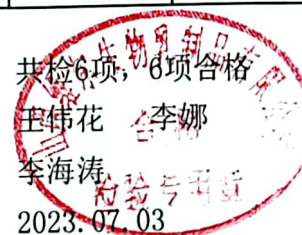 共检6项，6项合格
王伟花 李娜
合格
李海涛
检验专用章
2023.07.03